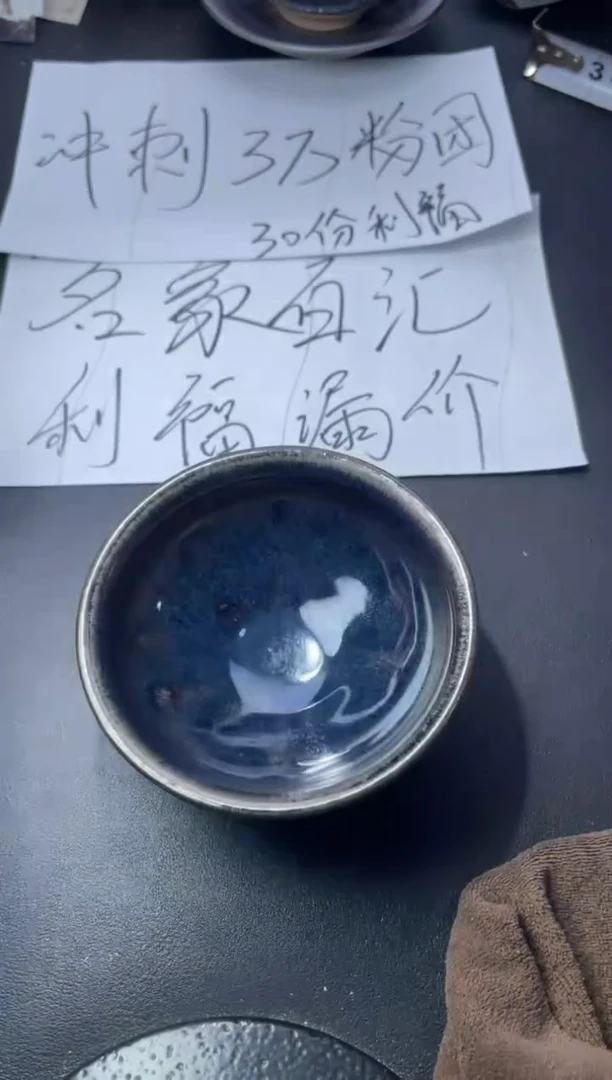 冲刺3万粉团
30份利福
名家百汇
利福漏价
3